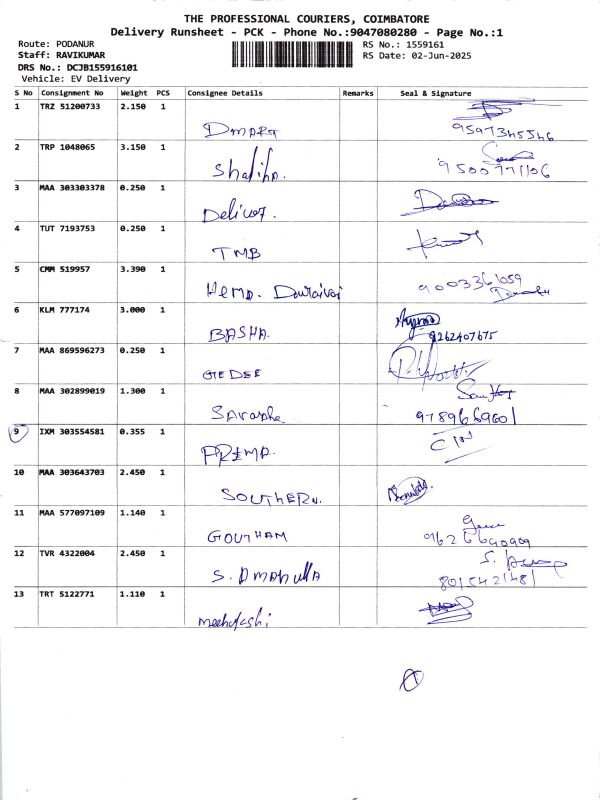 THE PROFESSIONAL COURIERS, COIMBATORE
Delivery Runsheet - PCK - Phone No.:9047080280 - Page No.:1
Route: PODANUR
Staff: RAVIKUMAR
DRS No.: DCJB155916101
Vehicle: EV Delivery
RS No.: 1559161
RS Date: 02-Jun-2025
S No Consignment No Weight PCS Consignee Details Remarks Seal & Signature
1 TRZ 51200733 2.150 1
DMART
9597345546
2 TRP 1048065 3.150 1
Shaliha.
9500771106
3 MAA 303303378 0.250 1
4 TUT 7193753 0.250 1
TMB
5 CMM 519957 3.390 1
Hema. 9003361059
6 KLM 777174 3.000 1
BASHA. 9262407675
7 MAA 869596273 0.250 1
GEDEE
8 MAA 302899019 1.300 1
9 IXM 303554581 0.355 1
PREMA.
10 MAA 303643703 2.450 1
SOUTHERN.
11 MAA 577097109 1.140 1
GOUTHAM 9626690909
12 TVR 4322004 2.450 1
S. Amanulla
13 TRT 5122771 1.110 1